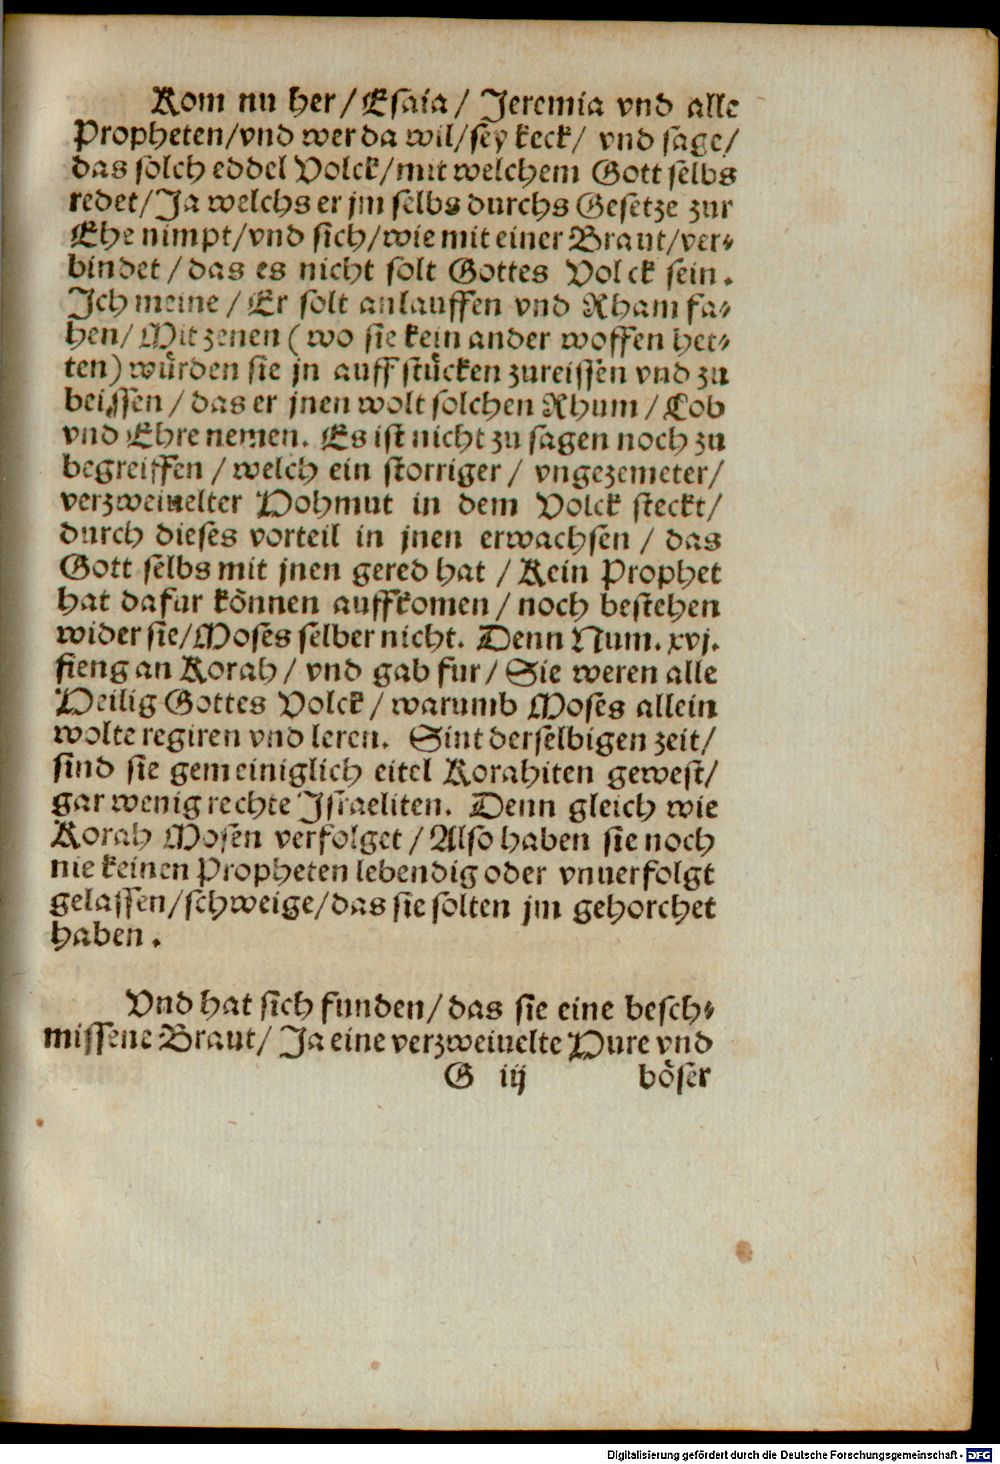 Kom nu her/Esaia/ Jeremia vnd alle
Propheten/vnd wer da wil/sey keck/ vnd sage/
das solch eddel Volck/mit welchem Gott selbs
redet/Ja welchs er jm selbs durchs Gesetze zur
Ehe nimpt/vnd sich/wie mit einer Braut/ver⸗
bindet/das es nicht solt Gottes Volck sein.
Ich meine/Er solt anlauffen vnd Rham fa⸗
hen/Mit zenen (wo sie kein ander woffen het⸗
ten) wuͤrden sie jn auff stuͤcken zureissen vnd zu
beissen/das er jnen wolt solchen Rhum/Lob
vnd Ehre nemen. Es ist nicht zu sagen noch zu
begreiffen/welch ein storriger/vngezemeter/
verzweiuelter Hohmut in dem Volck steckt/
durch dieses vorteil in jnen erwachsen/das
Gott selbs mit jnen gered hat/Kein Prophet
hat dafur koͤnnen auffkomen/noch bestehen
wider sie/Moses selber nicht. Denn Num. xvj.
fieng an Korah/vnd gab fur/Sie weren alle
Heilig Gottes Volck/warumb Moses allein
wolte regiren vnd leren. Sint derselbigen zeit/
sind sie gemeiniglich eitel Korahiten gewest/
gar wenig rechte Israeliten. Denn gleich wie
Korah Mosen verfolget/Also haben sie noch
nie keinen Propheten lebendig oder vnuerfolgt
gelassen/schweige/das sie solten jm gehorchet
haben.
Vnd hat sich funden/das sie eine besch⸗
missene Braut/Ja eine verzweiuelte Hure vnd
G iij boͤser
Digitalisierung gefördert durch die Deutsche Forschungsgemeinschaft - DFG